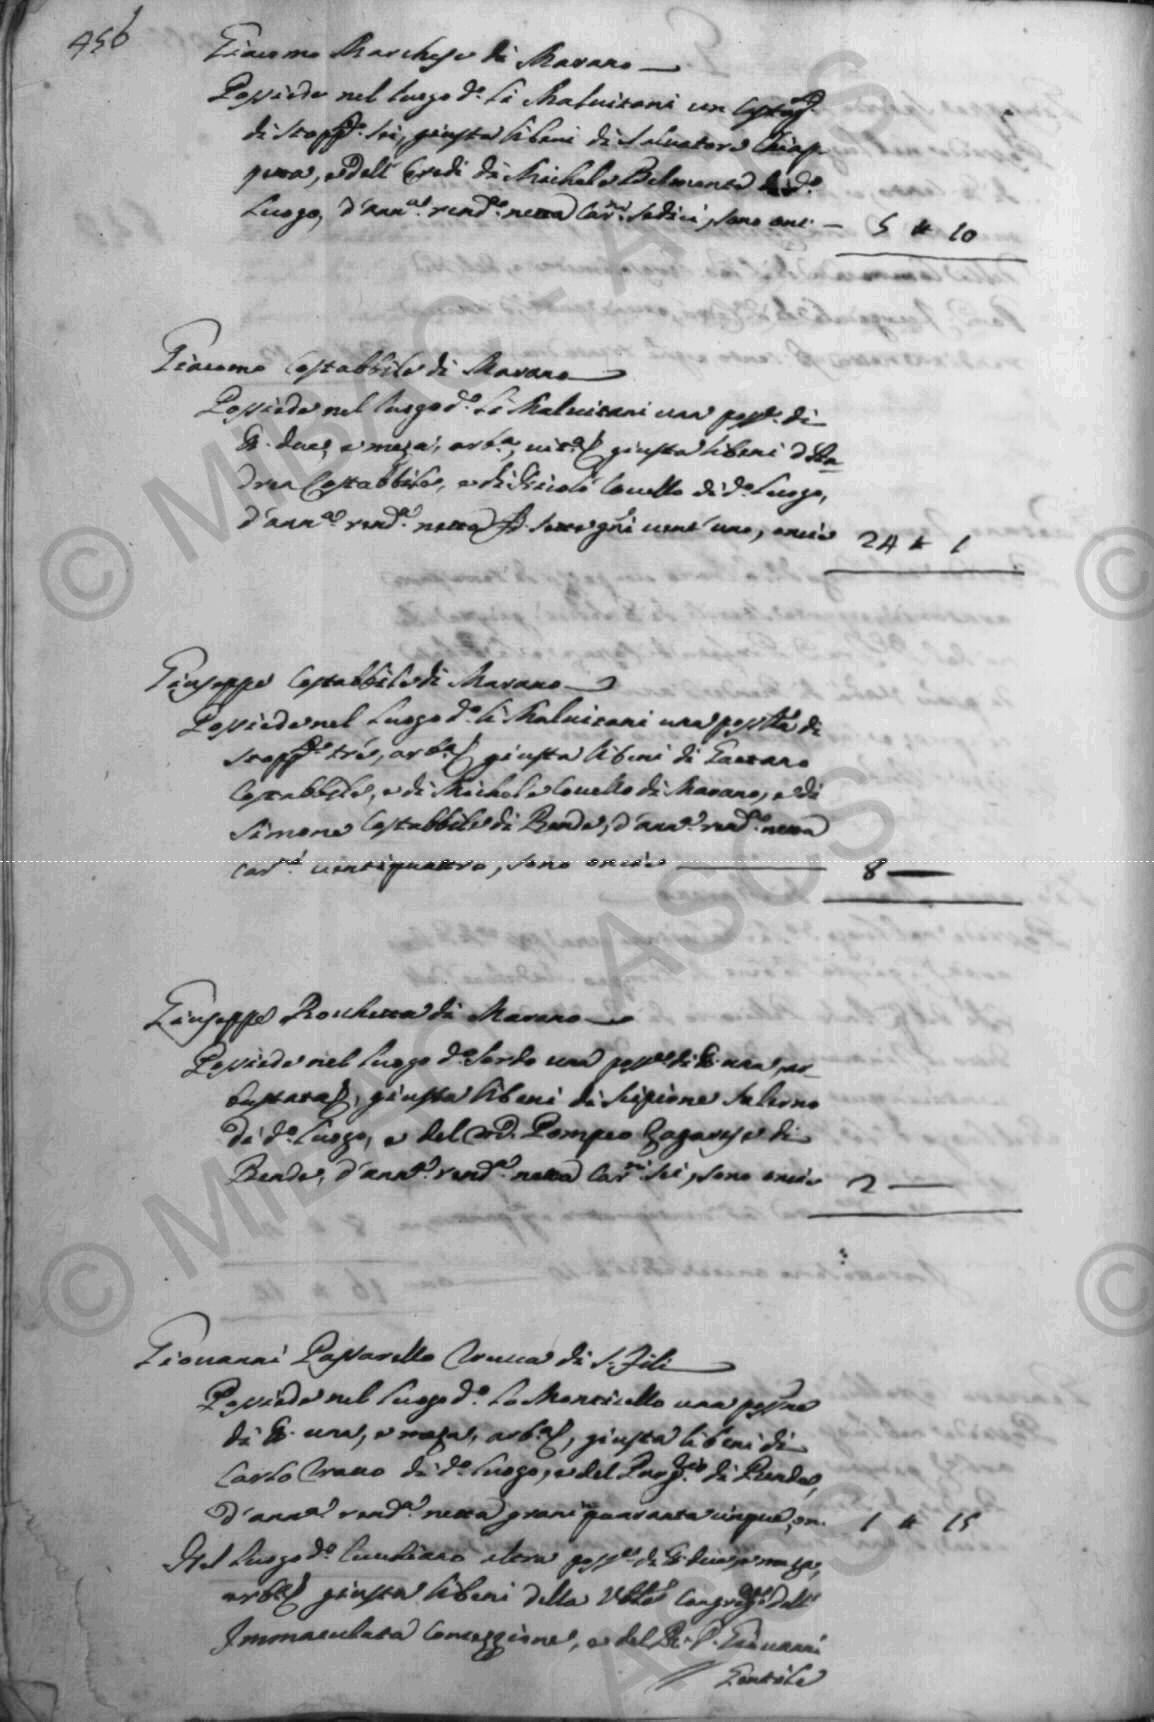 456
Giacomo Marchese di Marano
Possiede nel luogo d.o li Malvitani un
di stopp.e sei, giusta li beni di Salvatore Chiap-
petta, e dell'Eredi di Michele Belmonte di d.o
Luogo, d'ann.al rend.a netta Car.ni sedici, sono onc. 5 10
Giacomo Costabbile di Marano
Possiede nel luogo d.o li Malvitani una poss.e di
due, e meza, arb.a, vit.a giusta li beni d'An-
drea Costabbile, e di Nicolò Covello di d.o Luogo,
d'ann.al rend.a netta sette grani vent'uno, oncie 24 1
Giuseppe Costabbile di Marano
Possiede nel luogo d.o li Malvitani una poss.ne di
stopp.e tré, arb.a giusta li beni di Gaetano
Costabbile, e di Michele Covello di Marano, e di
Simone Costabbile di Rende, d'ann.al rend.a netta
car.ni ventiquattro, sono oncie 8
Giuseppe Rocchetta di Marano
Possiede nel luogo d.o Sordo una poss.ne di una, ar-
bustata, giusta li beni di Scipione Salerno
di d.o Luogo, e del Pompeo Zagarese di
Rende, d'ann.al rend.a netta Car.ni sei, sono oncie 2
Giovanni Passarello di S. Fili
Possiede nel luogo d.o lo Monticello una poss.ne
di una, e meza, arb.a, giusta li beni di
Carlo di d.o Luogo, e del di Rende,
d'ann.al rend.a netta grani quaranta cinque, on. 1 15
Nel luogo d.o altra poss.ne di due, e meza,
arb.a giusta li beni della Congreg.ne dell'
Immaculata Concezzione, e del Giovanni
Gentile
© MIBAC - ASCS
© MIBAC - ASCS